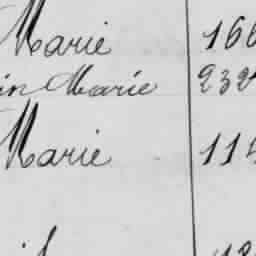 Marie 166
in Marie 232
Marie 11